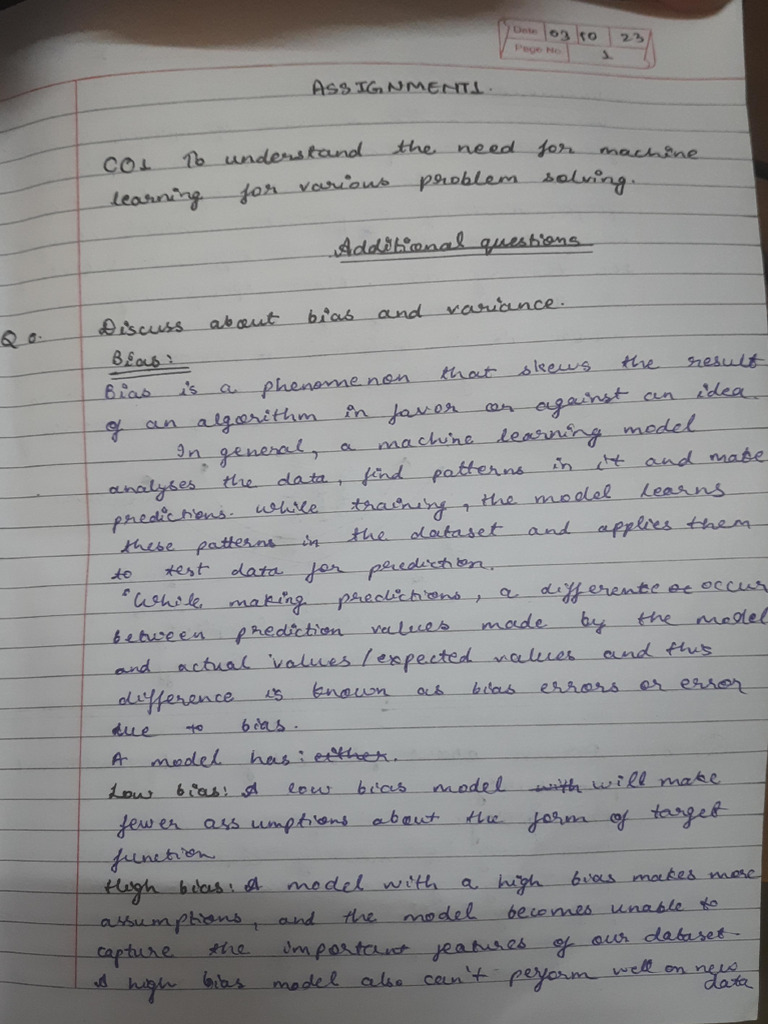 Date 03 10 23
Page No 1
ASSIGNMENT1.
CO1 To understand the need for machine
learning for various problem solving.
Additional questions
Q0. Discuss about bias and variance.
Bias:
Bias is a phenomenon that skews the result
of an algorithm in favor or against an idea.
In general, a machine learning model
analyses the data, find patterns in it and make
predictions. While training, the model learns
these patterns in the dataset and applies them
to test data for prediction.
"While making predictions, a difference occur
between prediction values made by the model
and actual values/expected values and this
difference is known as bias errors or error
due to bias.
A model has: either.
Low bias: A low bias model with will make
fewer assumptions about the form of target
function
High bias: A model with a high bias makes more
assumptions, and the model becomes unable to
capture the important features of our dataset.
A high bias model also can't perform well on new
data